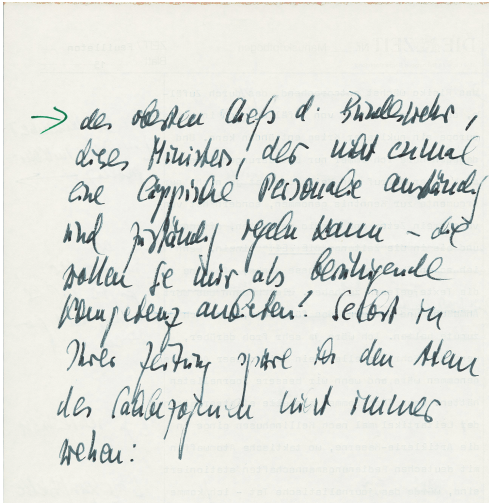 → des obersten Chefs d. Bundeswehr,
dieses Ministers, der nicht einmal
eine läppische Personalie anständig
und zuständig regeln kann – die
wollen Sie mir als beruhigende
Kompetenz anbieten! Selbst in
Ihrer Zeitung spüre ich den Atem
des nicht immer
wehen: